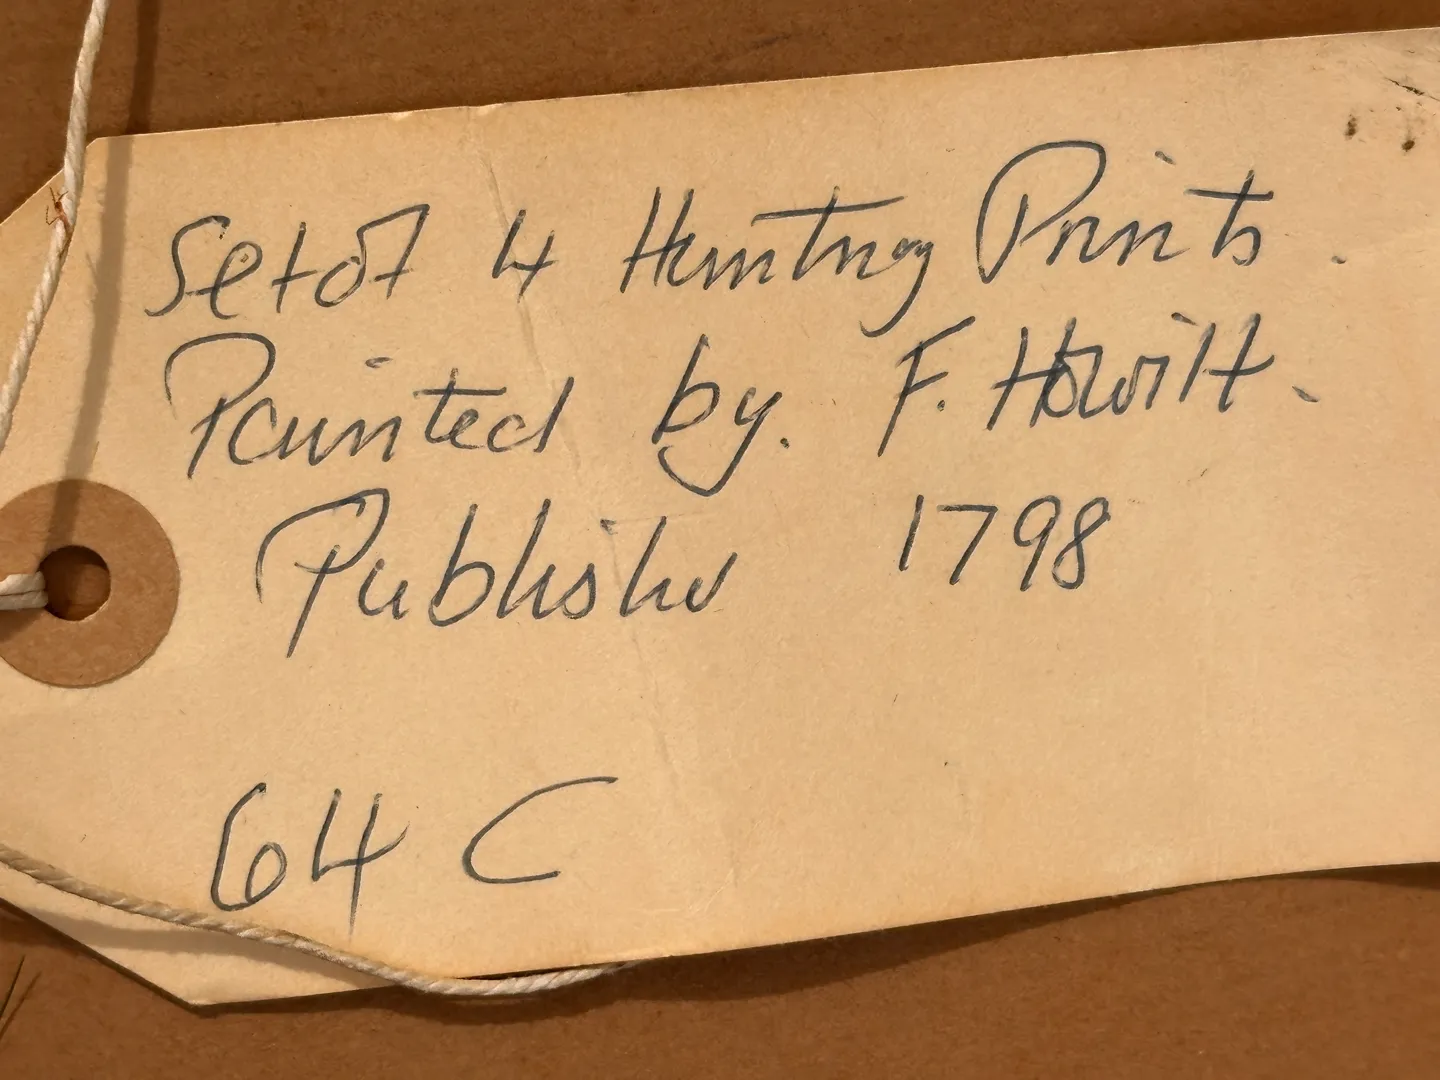 Set of 4 Hunting Prints.
Painted by. F. Howitt.
Publishd 1798
64 C